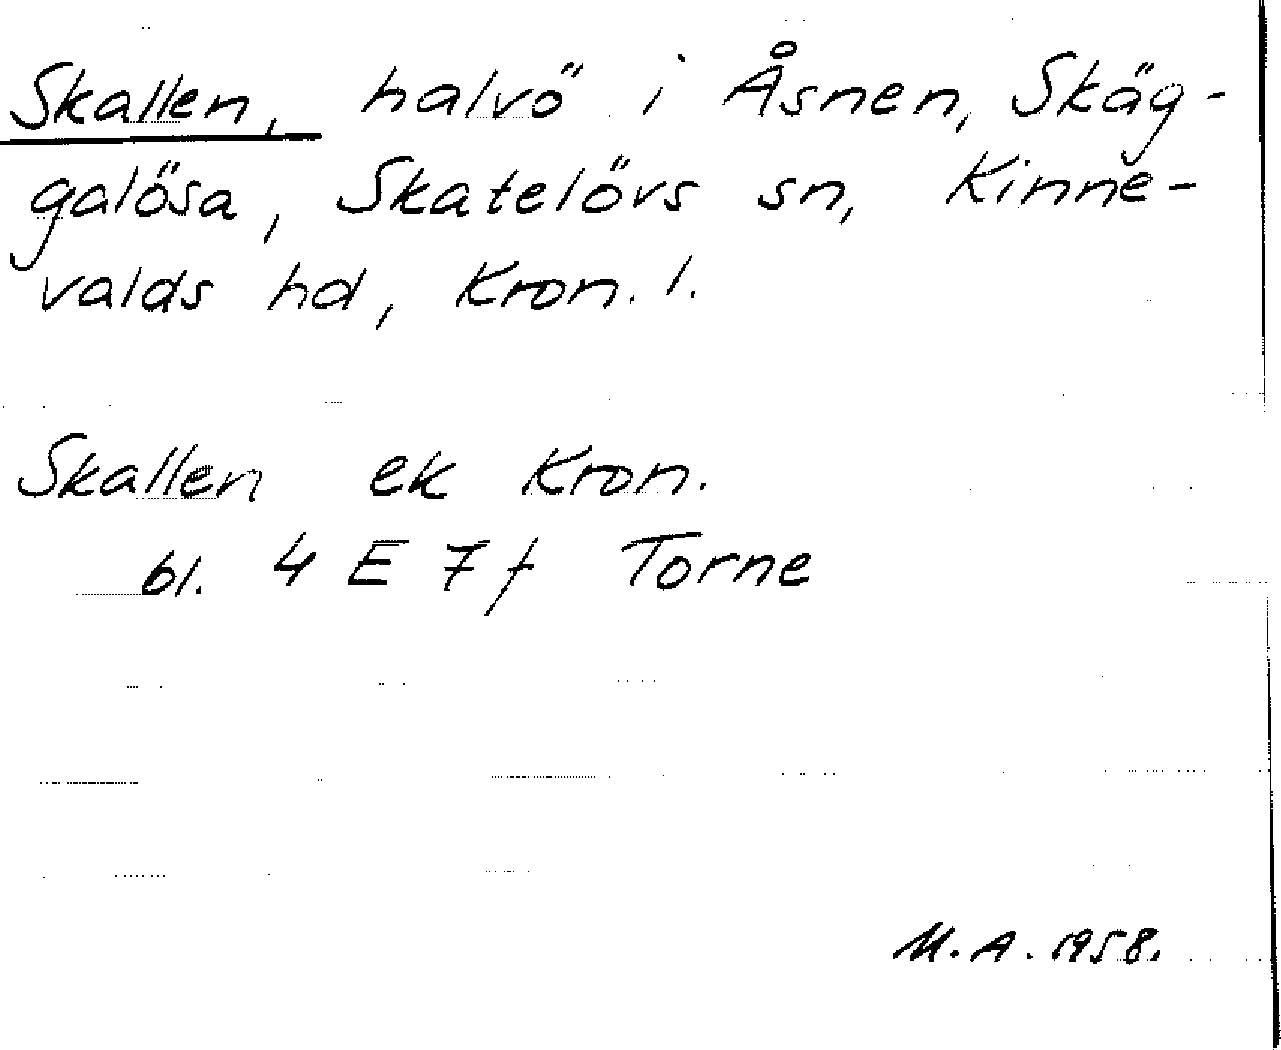 Skallen, halvö i Åsnen, Skäg-
galösa, Skatelövs sn, Kinne-
valds hd, Kron. l.
Skallen ek Kron.
bl. 4 E 7 f Torne
M.A. 1958.